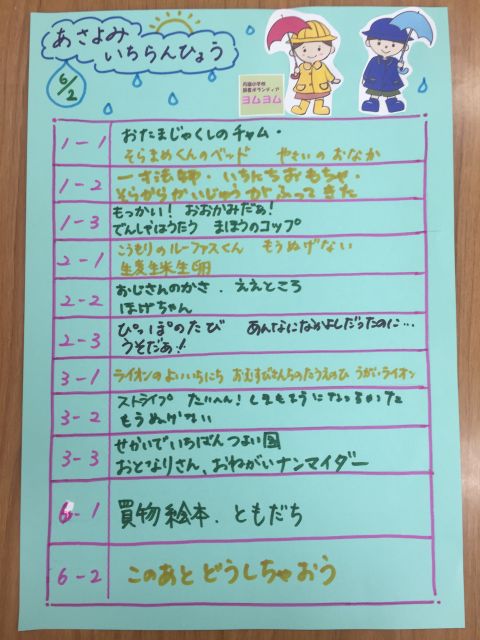 あさよみ
いちらんひょう
6/2
読書ボランティア
ヨムヨム
1-1
おたまじゃくしのチャム・
そらまめくんのベッド やさいのおなか
1-2
一寸法師・いちにちおもちゃ・
そらからかいじゅうがふってきた
1-3
もっかい! おおかみだぁ!
でんしゃはうたう まほうのコップ
2-1
こうもりのルーファスくん もうぬげない
生麦生米生卵
2-2
おじさんのかさ.ええところ
ほげちゃん
2-3
ぴっぽのたび あんなになかよしだったのに…
うそだぁ!
3-1
ライオンのよいいちにち おむすびさんちのたうえのひ うがいライオン
3-2
ストライプ たいへん!しまもように なっちゃった
もうぬげない
3-3
せかいでいちばんつよい国
おとなりさん、おねがいナンマイダー
6-1
買物絵本.ともだち
6-2
このあと どうしちゃおう